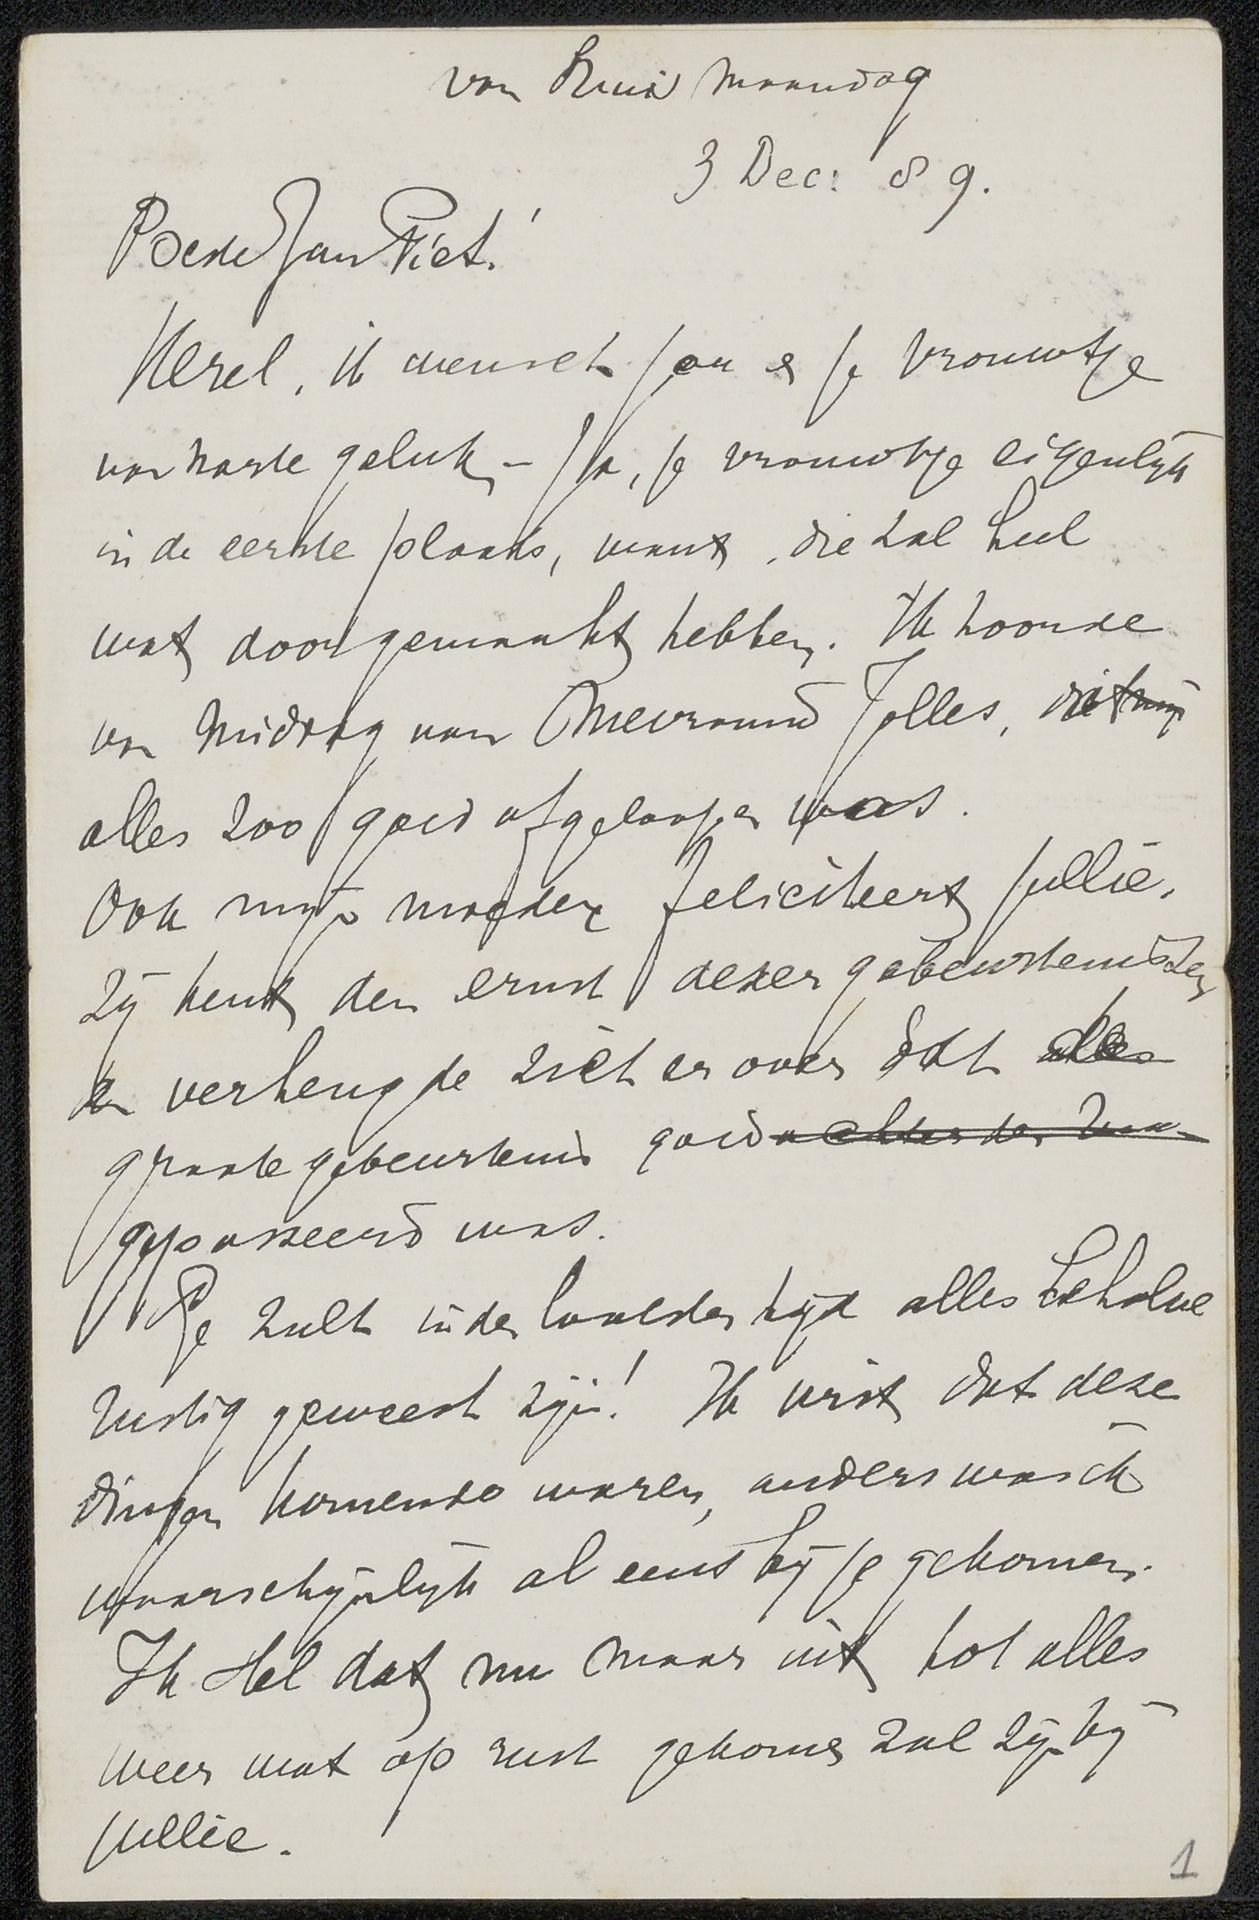 van Huis Maandag
3 Dec: 89.
Beste Jan Piet!
Kerel, ik wensch jou en je vrouwtje
van harte geluk – Ja, je vrouwtje eigenlijk
in de eerste plaats, want die zal heel
wat doorgemaakt hebben. Ik hoorde
van middag van Mevrouw Jolles, dat mij
alles zoo goed afgeloopen was.
Ook mijn moeder feliciteert jullie.
Zij kent den ernst dezer gebeurtenissen
en verheugde zich er over dat alles
groote gebeurtenis goed achter den
gepasseerd was.
Je zult in den laatsten tijd alles behalve
rustig geweest zijn! Ik wist dat deze
dingen komende waren, anders was ik
waarschijnlijk al eens bij je gekomen.
Ik stel dat nu maar uit tot alles
weer wat op rust gekomen zal zijn bij
jullie.
1